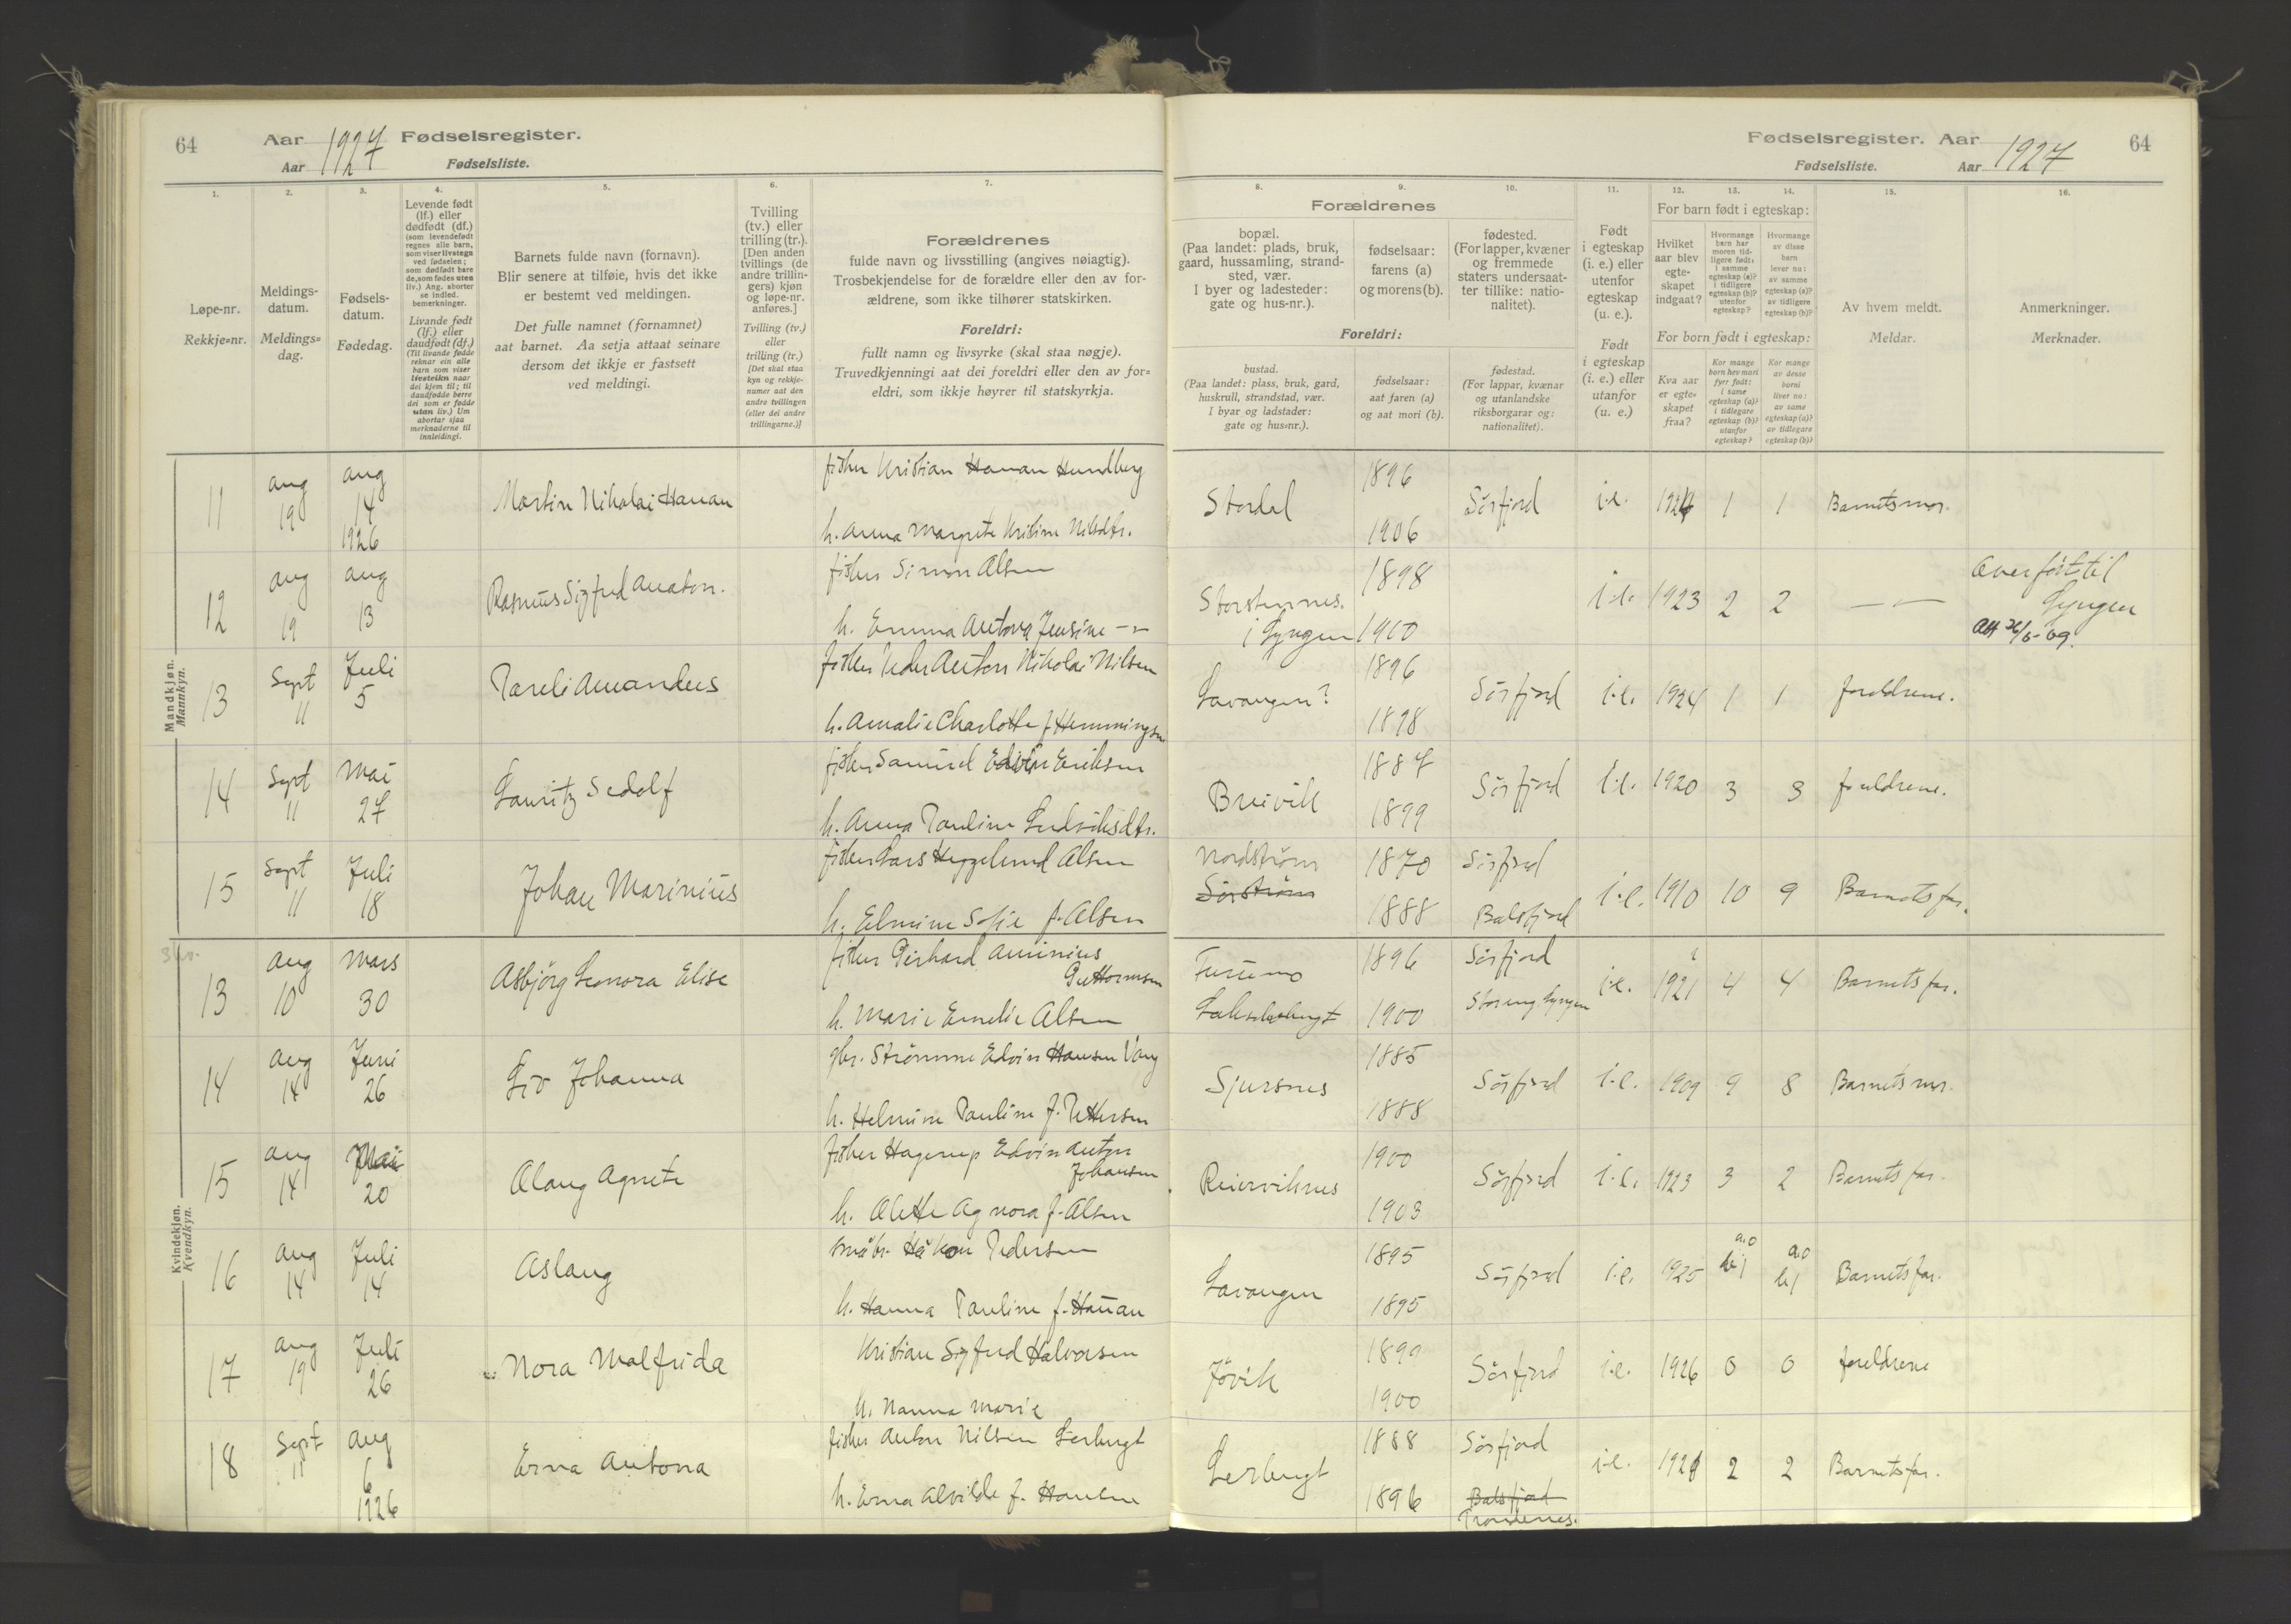 64 Aar 1927 Fødselsregister.
Aar Fødselsliste.
Fødselsregister. Aar 1927 64
Fødselsliste. Aar
1.
Løpe-nr.
Rekkje=nr.
2.
Meldings-
datum.
Meldings=
dag.
3.
Fødsels-
datum.
Fødedag.
4.
Levende født
(lf.) eller
dødfødt (df.)
(som levendefødt
regnes alle barn,
som viser livstegn
ved fødselen;
som dødfødt bare
de, som fødes uten
liv.) Ang. aborter
se indled.
bemerkninger.
Livande født
(lf.) eller
daudfødt (df.)
(Til livande fødde
reknar ein alle
barn som viser
livsteikn naar
dei kjem til; til
daudfødde berre
dei som er fødde
utan liv.) Um
abortar sjaa
merknaderne til
innleidingi.
5.
Barnets fulde navn (fornavn).
Blir senere at tilføie, hvis det ikke
er bestemt ved meldingen.
Det fulle namnet (fornamnet)
aat barnet. Aa setja attaat seinare
dersom det ikkje er fastsett
ved meldingi.
6.
Tvilling
(tv.) eller
trilling (tr.).
[Den anden
tvillings (de
andre trillin-
gers) kjøn
og løpe-nr.
anføres.]
Tvilling (tv.)
eller
trilling (tr.)
[Det skal staa
kyn og rekkje-
numer aat den
andre tvillingen
(eller dei andre
trillingarne.)]
7.
Forældrenes
fulde navn og livsstilling (angives nøiagtig).
Trosbekjendelse for de forældre eller den av for-
ældrene, som ikke tilhører statskirken.
Foreldri:
fullt namn og livsyrke (skal staa nøgje).
Truvedkjenningi aat dei foreldri eller den av for=
eldri, som ikkje høyrer til statskyrkja.
8.
Forældrenes
bopæl.
(Paa landet: plads, bruk,
gaard, hussamling, strand-
sted, vær.
I byer og ladesteder:
gate og hus-nr.).
Foreldri:
bustad.
(Paa landet: plass, bruk, gard,
huskrull, strandstad, vær.
I byar og ladstader:
gate og hus=nr.).
9.
fødselsaar:
farens (a)
og morens (b).
fødselsaar:
aat faren (a)
og aat mori (b).
10.
fødested.
(For lapper, kvæner
og fremmede
staters undersaat-
ter tillike: natio-
nalitet).
fødestad.
(For lappar, kvænar
og utanlandske
riksborgarar og:
nationalitet).
11.
Født
i egteskap
(i. e.) eller
utenfor
egteskap
(u. e.).
Født
i egteskap
(i. e.) eller
utanfor
(u. e.)
12. 13. 14.
For barn født i egteskap:
Hvilket
aar blev
egte-
skapet
indgaat?
Hvormange
barn har
moren tid-
ligere født:
i samme
egteskap (a)?
i tidligere
egteskap (b)?
utenfor
egteskap?
Hvormange
av disse
barn
lever nu:
av samme
egteskap (a)?
av tidligere
egteskap (b)?
For born født i egteskap:
Kva aar
er egte=
skapet
fraa?
Kor mange
born hev mori
fyrr født:
i same
egteskap (a)?
i tidlegare
egteskap (b)?
utanfor
egteskap?
Kor mange
av desse
borni
liver no:
av same
egteskap (a)?
av tidlegare
egteskap (b)?
15.
Av hvem meldt.
Meldar.
16.
Anmerkninger.
Merknader.
Mandkjøn.
Mannkyn.
11 aug 19 aug 14 1926 Martin Nikolai Hanan
fisker Kristian Hanan Hundberg
h. Anna Margrete Kristine Nilsdtr.
Stordal 1896 1906 Sørfjord i.e. 1924 1 1 Barnets mor.
12 aug 19 aug 13 Rasmus Sigfred Anaton.
fisker Simon Alsen
h. Emma Antona Jensine -"-
Storsteinnes. i Lyngen 1898 1900 i.e. 1923 2 2 — " —
Overført til
Lyngen
13 Sept 11 Juli 5 Pareli Amandus
fisker Peder Anton Nikolai Nilsen
h. Amalie Charlotte f. Hemmingsen
Lavangen? 1896 1898 Sørfjord i.e. 1924 1 1 foreldrene.
14 Sept 11 Mai 27 Lauritz Sedolf
fisker Samuel Edvin Eriksen
h. Anna Pauline Ludviksdtr.
Breivik 1887 1899 Sørfjord i.e. 1920 3 3 foreldrene.
15 Sept 11 Juli 18 Johan Marinius
fisker Lars Heggelund Alsen
h. Elmine Sofie f. Alsen
Nordstrøm Sørstrøm 1870 1888 Sørfjord Balsfjord i.e. 1910 10 9 Barnets far.
Kvindekjøn.
Kvendkyn.
13 aug 10 Mars 30 Asbjörg Leonora Elise
fisker Gerhard Arminius
Guttormsen
h. Marie Emelie Alsen
Furumo Lakselvbugt 1896 1900 Sørfjord Storeng Lyngen i.e. 1921 4 4 Barnets far.
14 aug 14 Juni 26 Liv Johanna
gbr. Strømme Edvin Hansen Vang
h. Helmine Pauline f. Pettersen
Sjursnes 1885 1888 Sørfjord i.e. 1909 9 8 Barnets mor.
15 aug 14 Mai 20 Olaug Agnete
fisker Hagerup Edvin Anton
Johansen
h. Olette Agnora f. Alsen
Reierviknes 1900 1903 Sørfjord i.e. 1923 3 2 Barnets far.
16 aug 14 Juli 14 Aslaug
småbr. Håkon Pedersen
h. Hanna Pauline f. Hanan
Lavangen 1895 1895 Sørfjord i.e. 1925 a.0 b.1 a.0 b.1 Barnets far.
17 aug 19 Juli 26 Nora Malfrida
Kristian Sigfred Halvorsen
h. Nanna Marie
Jøvik 1899 1900 Sørfjord i.e. 1926 0 0 foreldrene
18 Sept 11 aug 6 1926 Erna Antona
fisker Anton Nilsen Lerbugt
h. Erna Alvilde f. Hansen
Lerbugt 1888 1896 Sørfjord Balsfjord Trondenes. i.e. 1921 2 2 Barnets far.